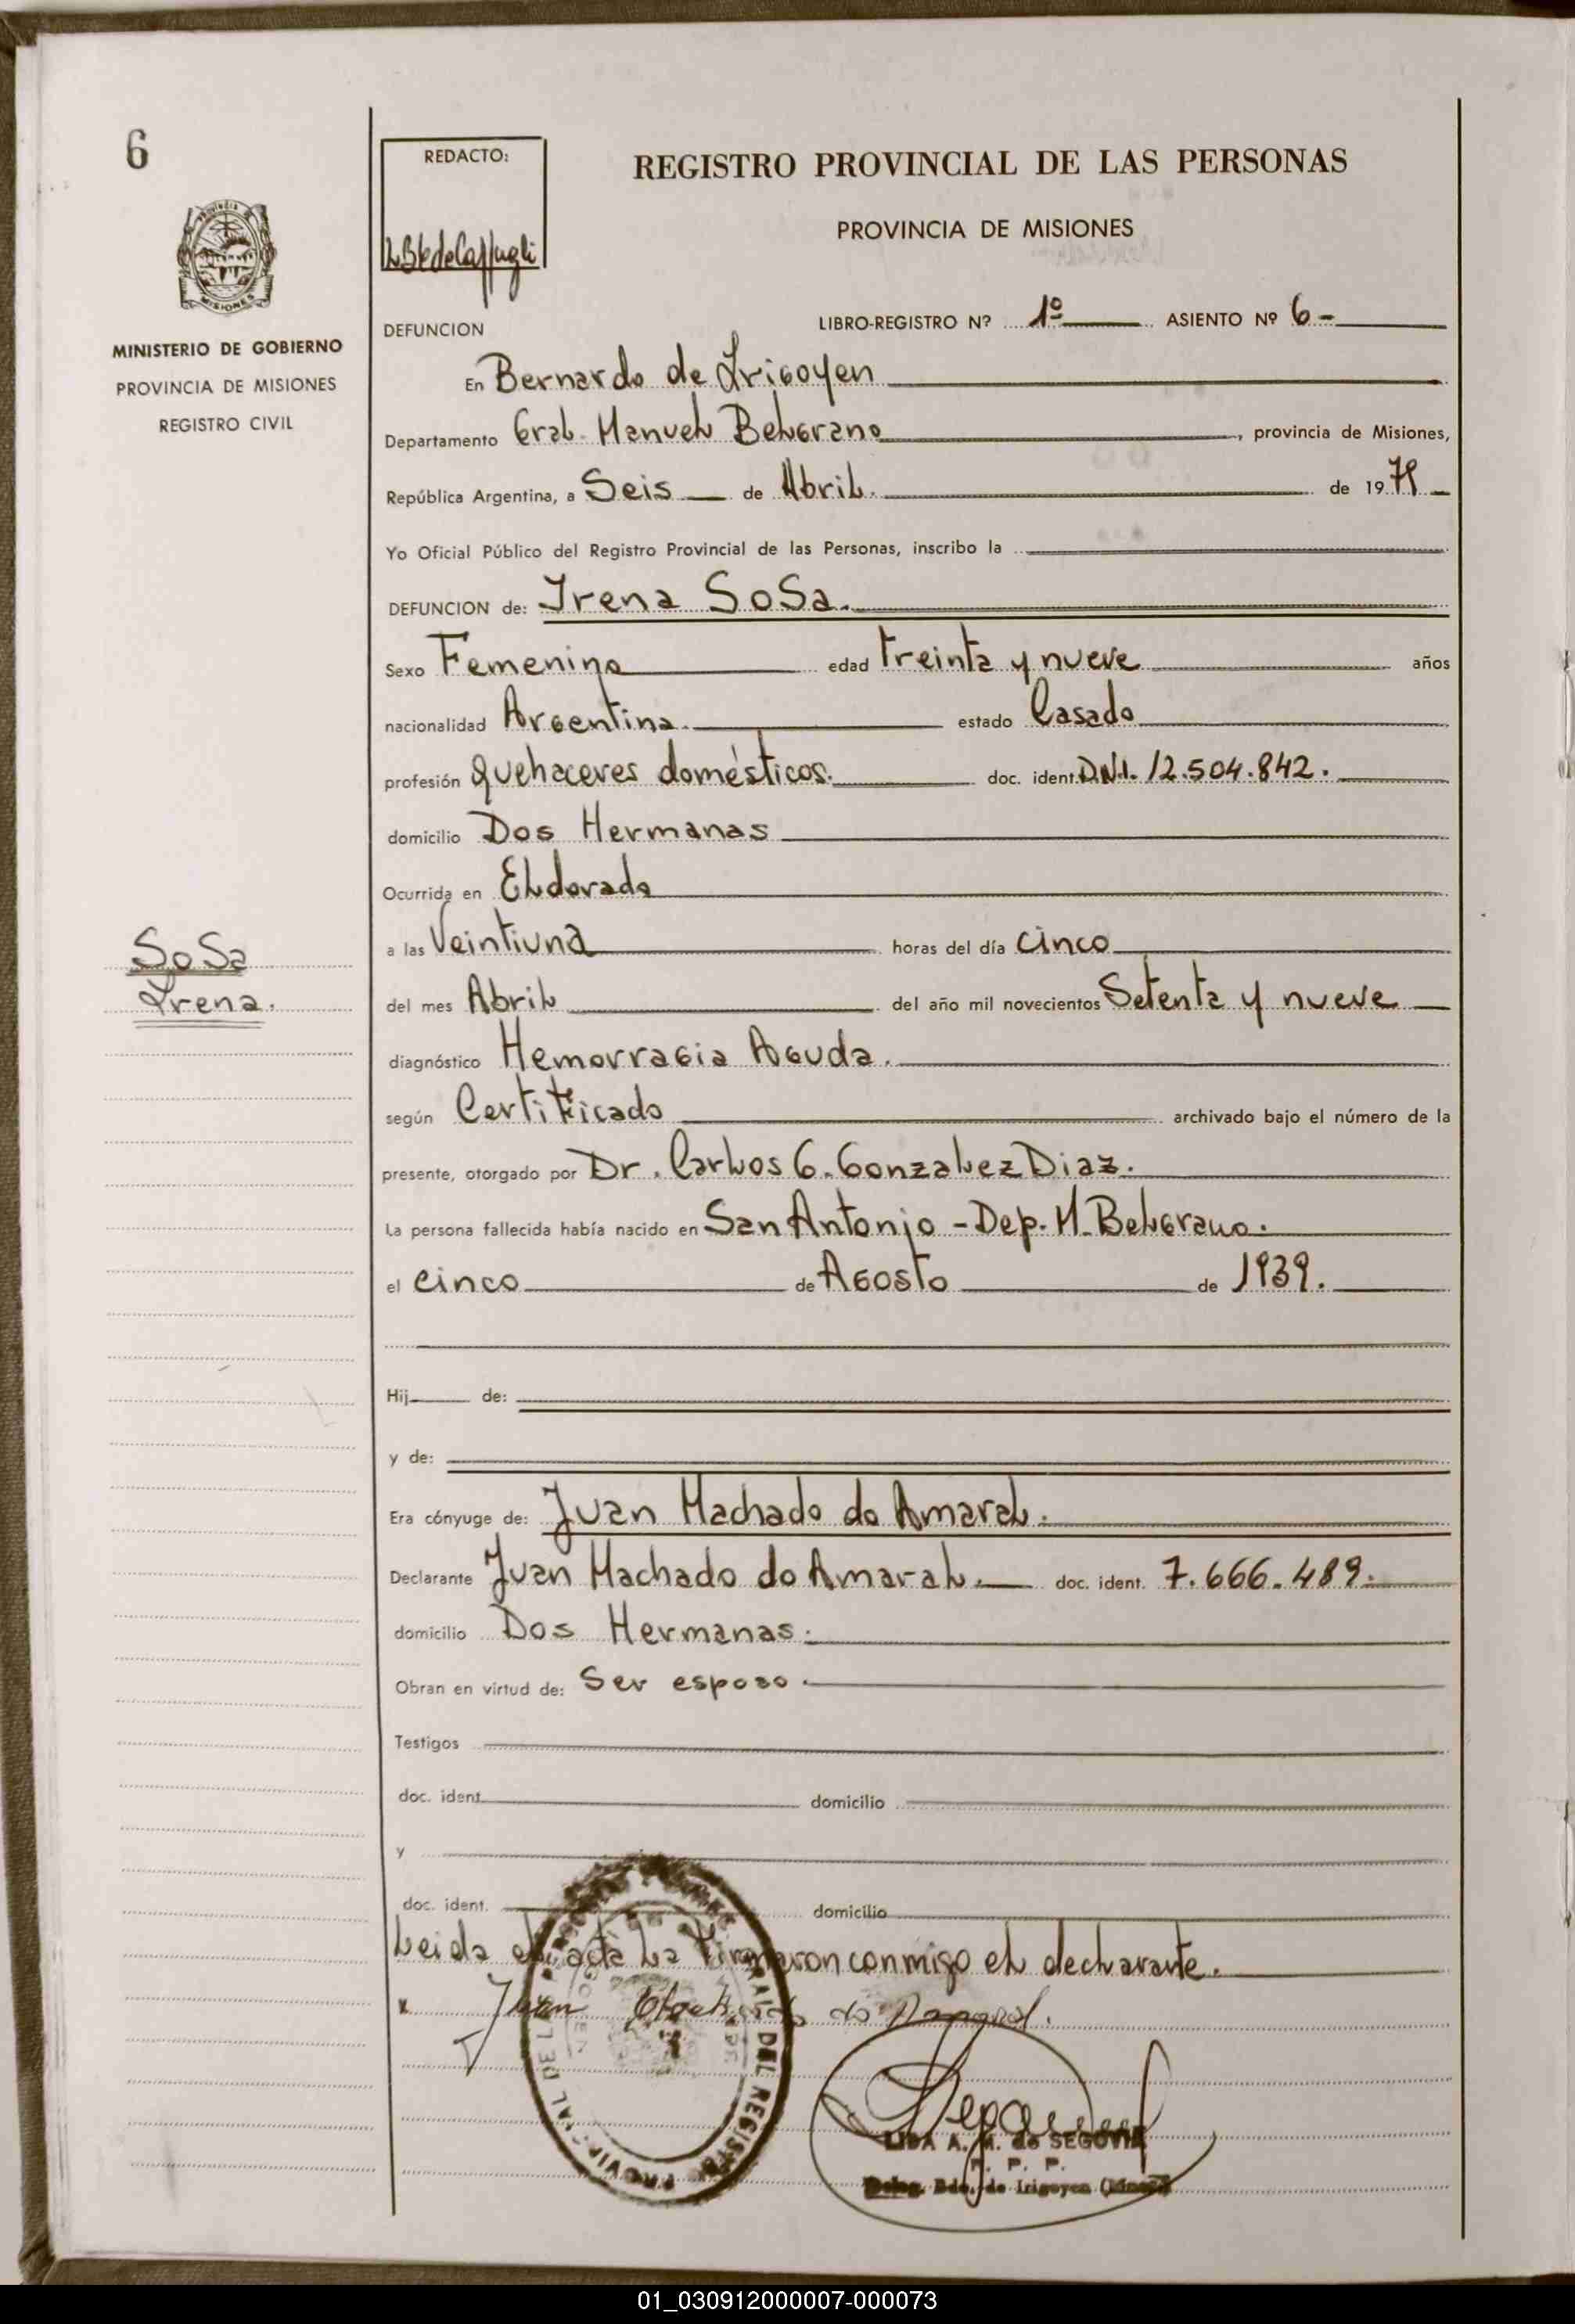 6
REDACTO:
REGISTRO PROVINCIAL DE LAS PERSONAS
PROVINCIA DE MISIONES
MISIONES
MINISTERIO DE GOBIERNO
PROVINCIA DE MISIONES
REGISTRO CIVIL
LIBRO-REGISTRO Nº 1º ASIENTO Nº 6-
DEFUNCION
En Bernardo de Irigoyen
Departamento Gral. Manuel Belgrano, provincia de Misiones,
República Argentina, a Seis de Abril. de 1979
Yo Oficial Público del Registro Provincial de las Personas, inscribo la
DEFUNCION de: Irena Sosa.
Sexo Femenino edad treinta y nueve años
nacionalidad Argentina. estado Casado
profesión Quehaceres domésticos. doc. ident. D.N.I. 12.504.842.
domicilio Dos Hermanas
Ocurrida en Eldorado
a las Veintiuna horas del día cinco
del mes Abril del año mil novecientos Setenta y nueve
Sosa
Irena.
diagnóstico Hemorragia Aguda.
según Certificado archivado bajo el número de la
presente, otorgado por Dr. Carlos G. Gonzalez Diaz.
La persona fallecida había nacido en San Antonio - Dep. M. Belgrano.
el cinco de Agosto de 1939.
Hij de:
y de:
Era cónyuge de: Juan Machado do Amaral.
Declarante Juan Machado do Amaral. doc. ident. 7.666.489.
domicilio Dos Hermanas.
Obran en virtud de: Ser esposo.
Testigos
doc. ident. domicilio
y
doc. ident. domicilio
Leida el acta la firmaron conmigo el declarante.
x Juan Machado do Amaral.
LIDA A. M. de SEGOVIA
Deleg. Bdo. de Irigoyen
01_030912000007-000073